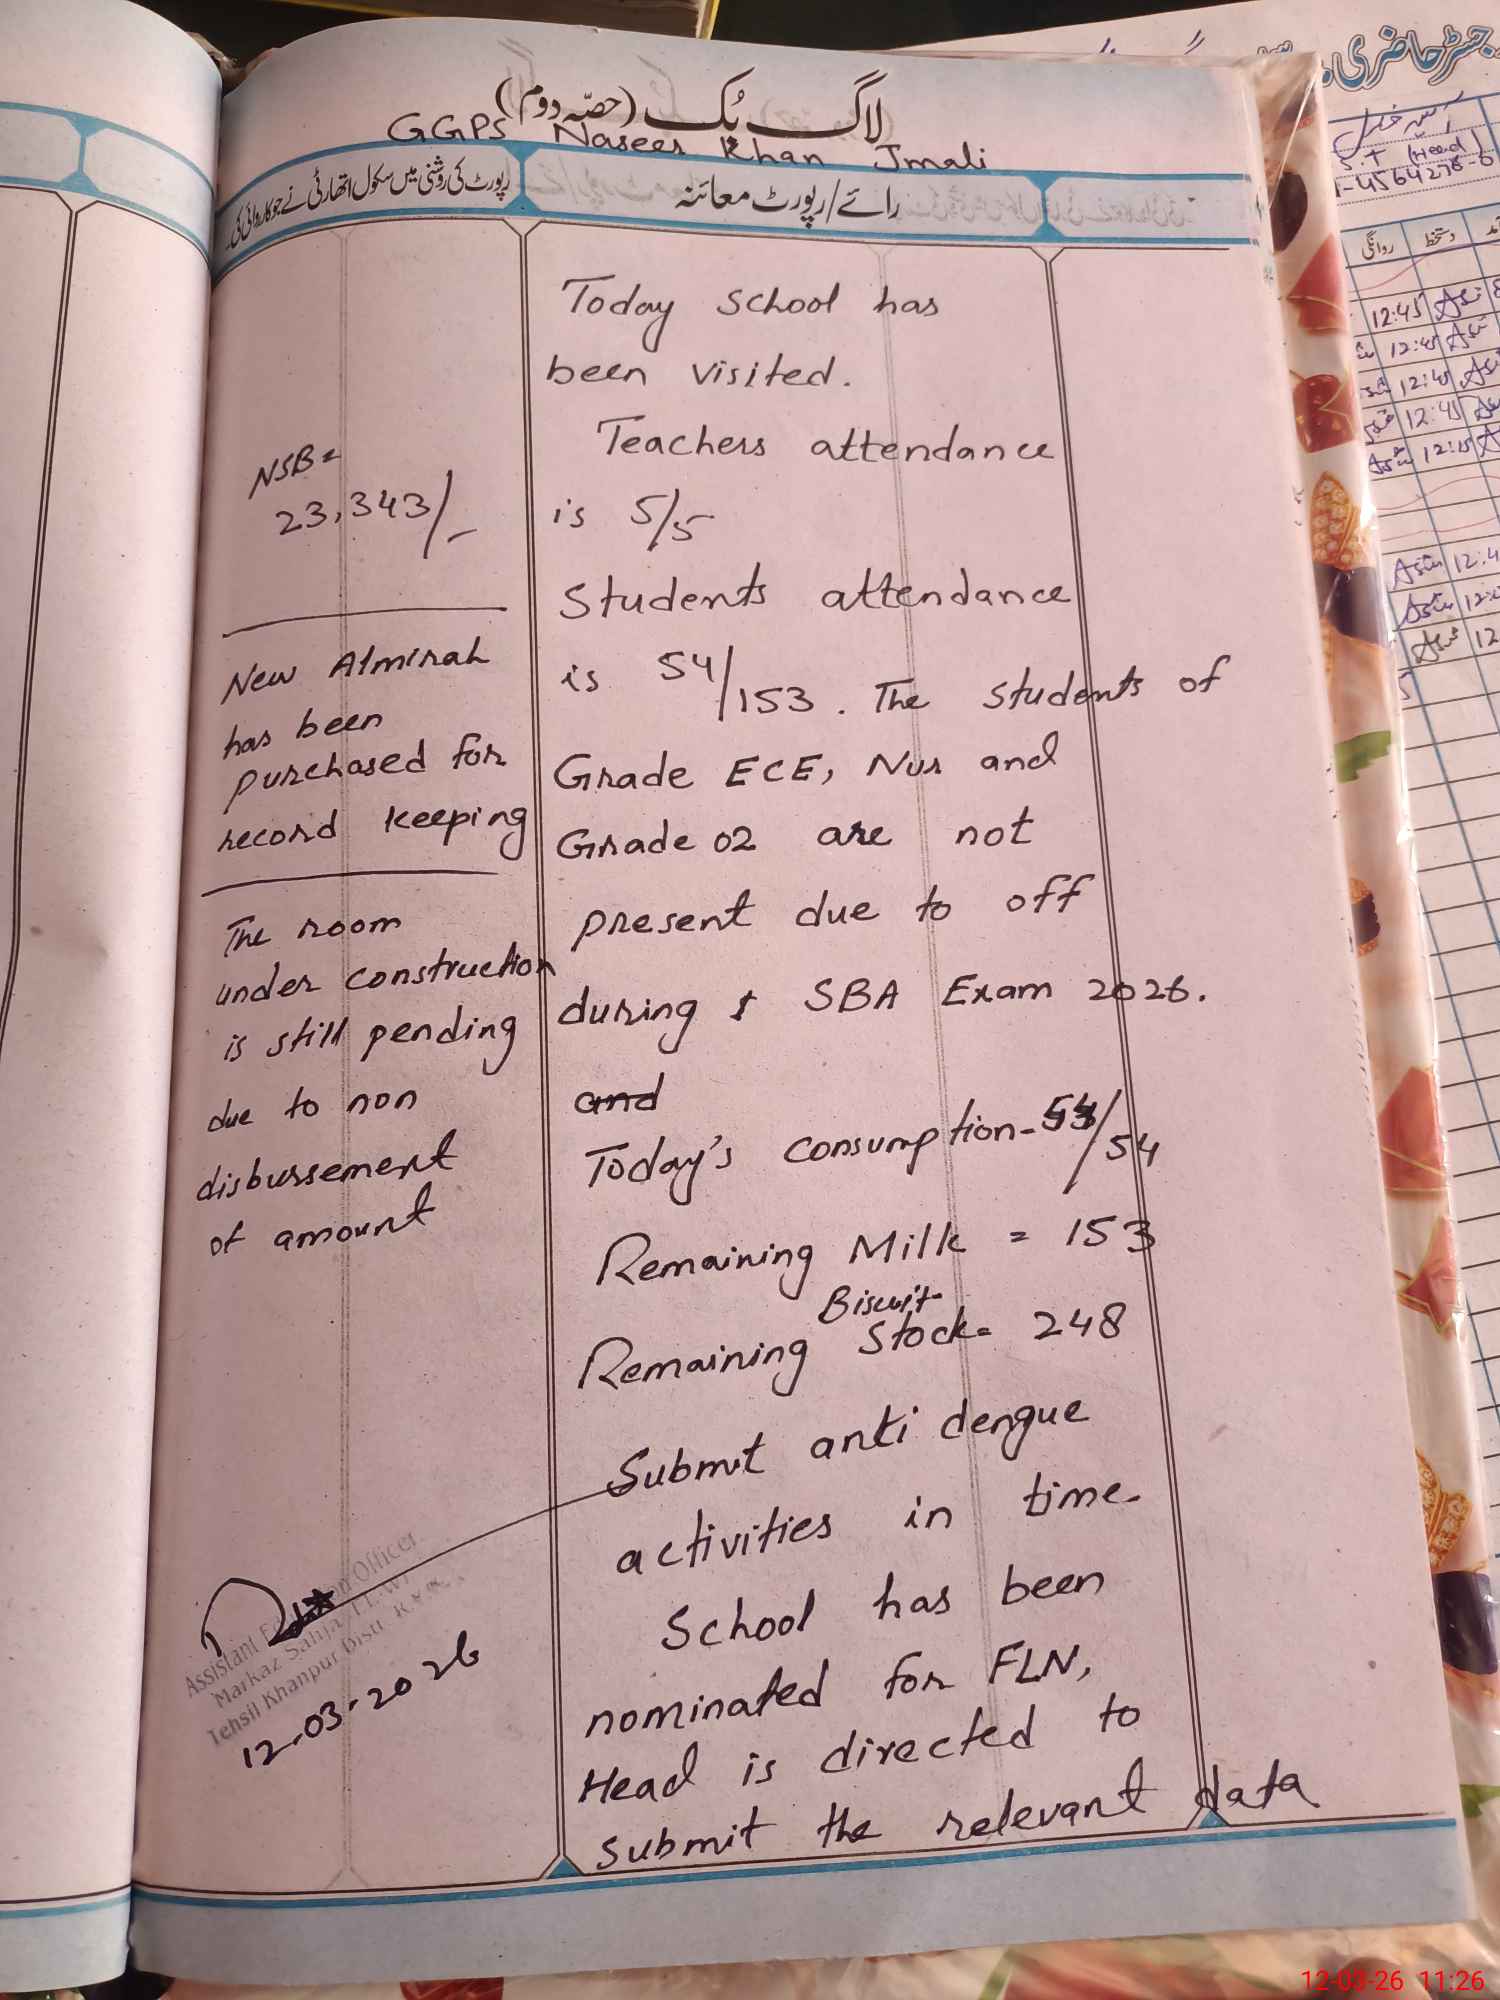 لاگ بُک (حصّہ دوم)
GGPS Naseer Khan Jmali
رپورٹ کی روشنی میں سکول اتھارٹی نے جو کاروائی کی۔
رائے/رپورٹ معائنہ
NSB =
23,343/-
New Almirah
has been
purchased for
record keeping
The room
under construction
is still pending
due to non
disbursement
of amount
Today School has
been visited.
Teachers attendance
is 5/5
Students attendance
is 54/153. The students of
Grade ECE, Nur and
Grade 02 are not
present due to off
during SBA Exam 2026.
and
Today's consumption - /54
Remaining Milk = 153
Biscuit
Remaining Stock = 248
Submit anti dengue
activities in time.
School has been
nominated for FLN,
Head is directed to
submit the relevant data
Assistant Officer
Markaz
Tehsil Khanpur Distt.
12-03-2026
جسٹر حاضری
S.T (Head)
1-4564276-6
روانگی دستخط
12:45
12:45
12:45
12:45
12:15
12-03-26 11:26